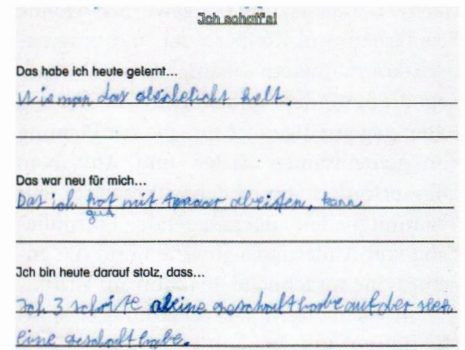 Ich schaffe!
Das habe ich heute gelernt...
Wie man das gleichgewicht helt.
Das war neu für mich...
Das ich gut mit arbeiten, kann
gut
Ich bin heute darauf stolz, dass...
Ich 3 schrite aleine geschaft habe auf der
eine geschaft habe.